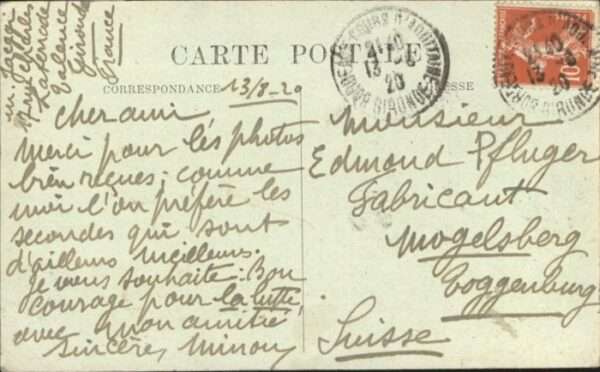 CARTE POSTALE
CORRESPONDANCE
13/8-20
Cher ami
Merci pour les photos
bien reçues; comme
moi l'on préfère les
secondes qui sont
d'ailleurs meilleures.
je vous souhaite: Bon
courage pour la lutte,
avec mon amitié
sincères, Minou
Talence
Gironde
France
Monsieur
Edmond Pfluger
Fabricant
Mogelsberg
Toggenburg
Suisse
BORDEAUX COURS D'AQUITAINE
GIRONDE
13
20
10